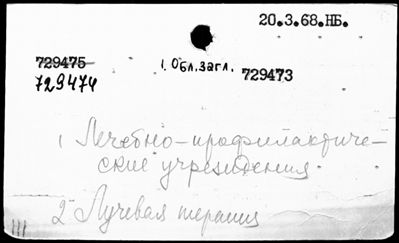 20.3.68.НБ.
729475
1. Обл.загл.
729473
729474
1 Лечебно-профилактиче-
ские учреждения.
2 Лучевая терапия
III